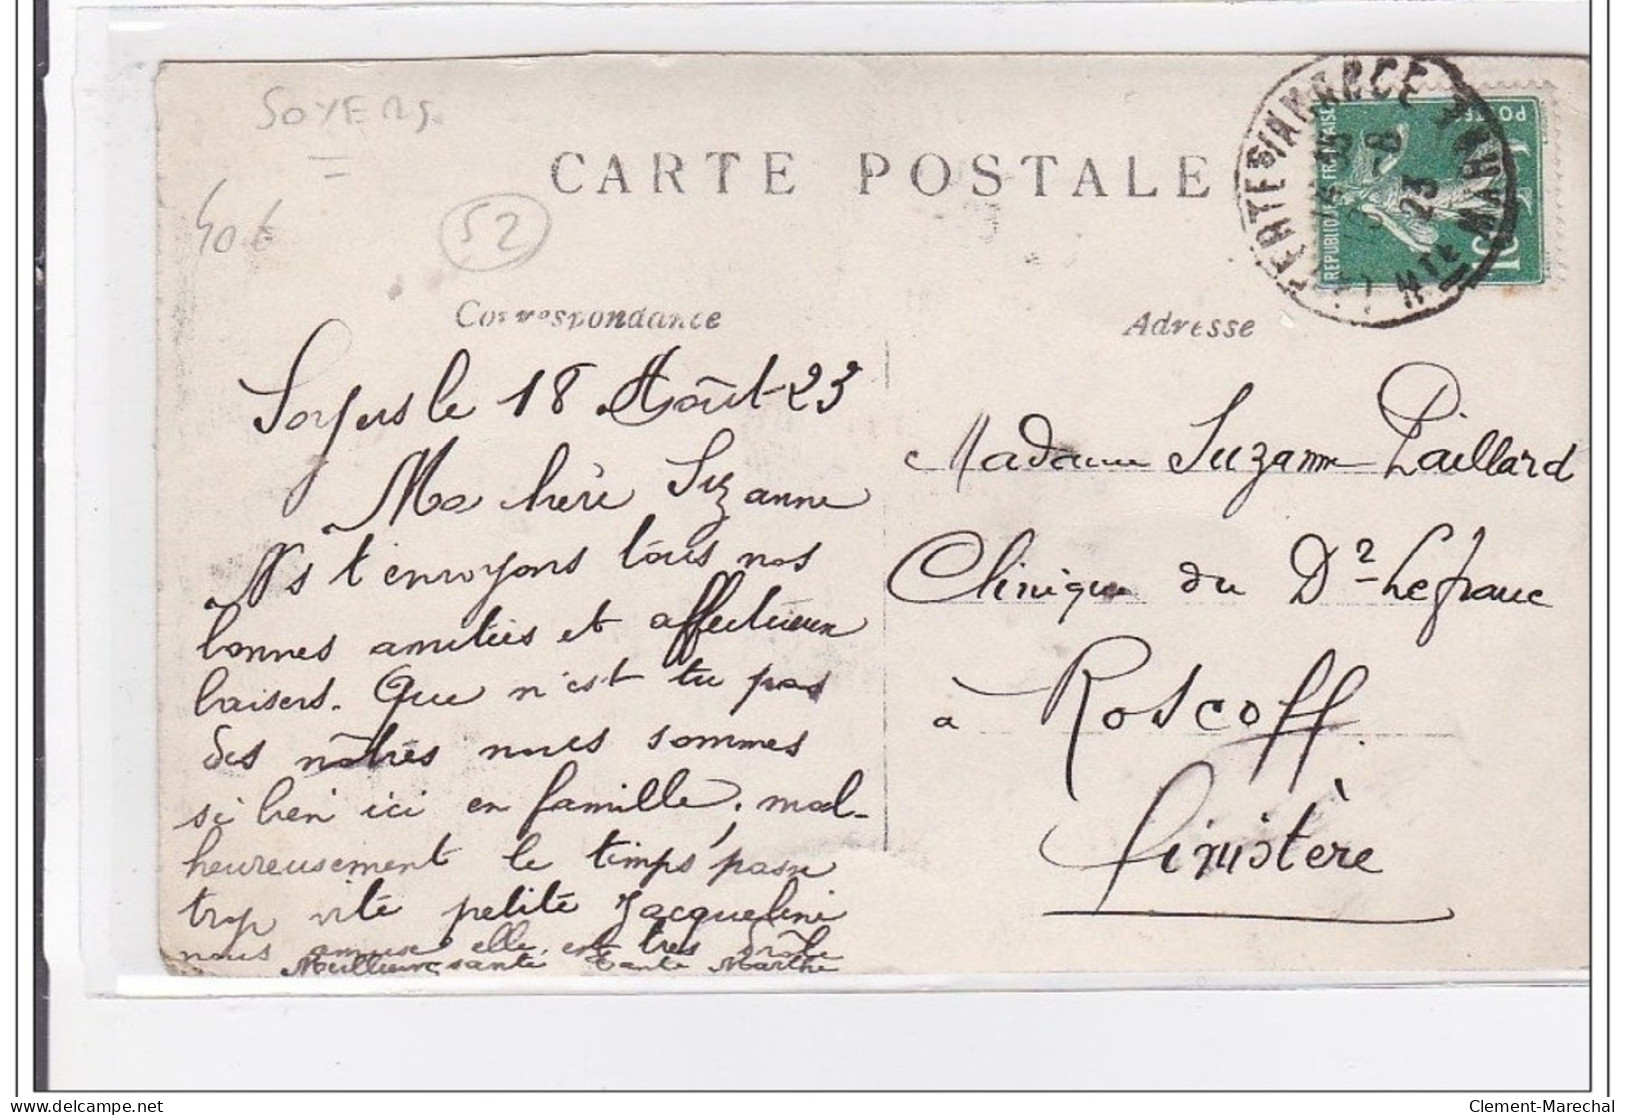 SOYERS
40 €
52
CARTE POSTALE
Correspondance
Adresse
Soyers le 18 Août 23
Ma chère Suzanne
Ns t'envoyons tous nos
bonnes amitiés et affectueux
baisers. Que n'est tu pas
des nôtres nous sommes
si bien ici en famille, mal-
heureusement le temps passe
trop vite petite Jacqueline
nous amuse elle est très drôle
Meilleure santé Tante Marthe
Madame Suzanne Paillard
Clinique du Dr Lefranc
à Roscoff
Finistère
REPUBLIQUE FRANÇAISE
POSTES
10
HTE MARNE
23
Clement-Marechal